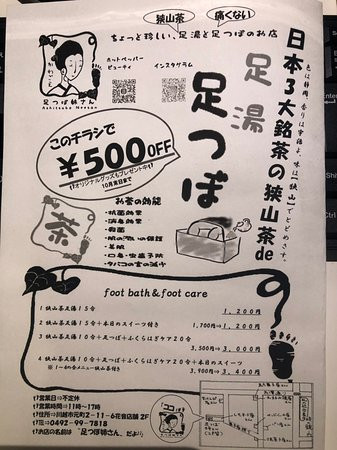 狭山茶 痛くない
ちょっと珍しい、足湯と足つぼのお店
足つぼ姉さん
Ashitsubo Neesan
ホットペッパー
ビューティ
インスタグラム
日本3大銘茶の狭山茶de
色は静岡、香りは宇治よ、味は【狭山】でとどめさす。
足湯
足つぼ
このチラシで
¥500OFF
オリジナルグッズもプレゼント中!
10月末日まで
お茶の効能
・抗菌効果
・消臭効果
・殺菌
・肌の潤いの保護
・美肌
・口臭・虫歯予防
・タバコの害の減少
茶
foot bath & foot care
1 狭山茶足湯15分 1,200円
2 狭山茶足湯15分+本日のスイーツ付き 1,700円⇒1,200円
3 狭山茶足湯10分+足つぼ+ふくらはぎケア20分 3,500円⇒3,000円
4 狭山茶足湯10分+足つぼ+ふくらはぎケア20分+本日のスイーツ 3,900円⇒3,400円
営業日⇒不定休
営業時間⇒11時〜17時
住所⇒川越市元町2-11-6花音店舗2F
☎0492-99-7818
お店の名前は「足つぼ姉さん」だよ
ココ